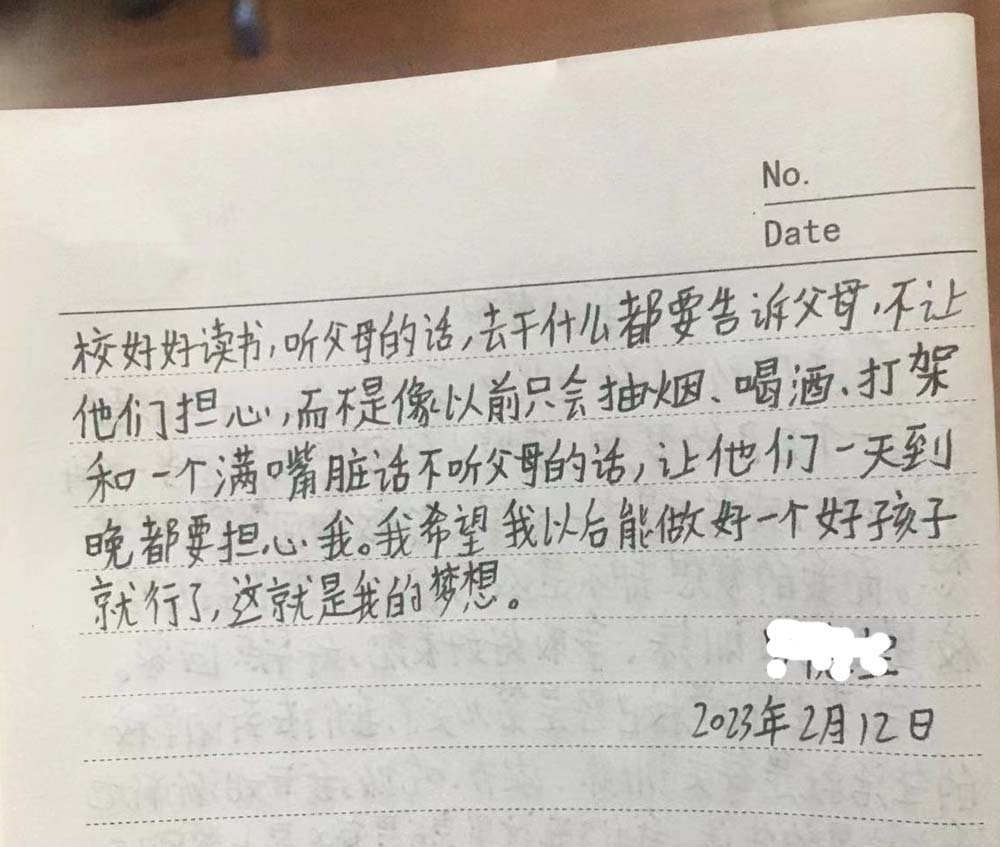 No.
Date
校好好读书,听父母的话,去干什么都要告诉父母,不让
他们担心,而不是像以前只会抽烟、喝酒、打架
和一个满嘴脏话不听父母的话,让他们一天到
晚都要担心我。我希望我以后能做好一个好孩子
就行了,这就是我的梦想。
2023年2月12日